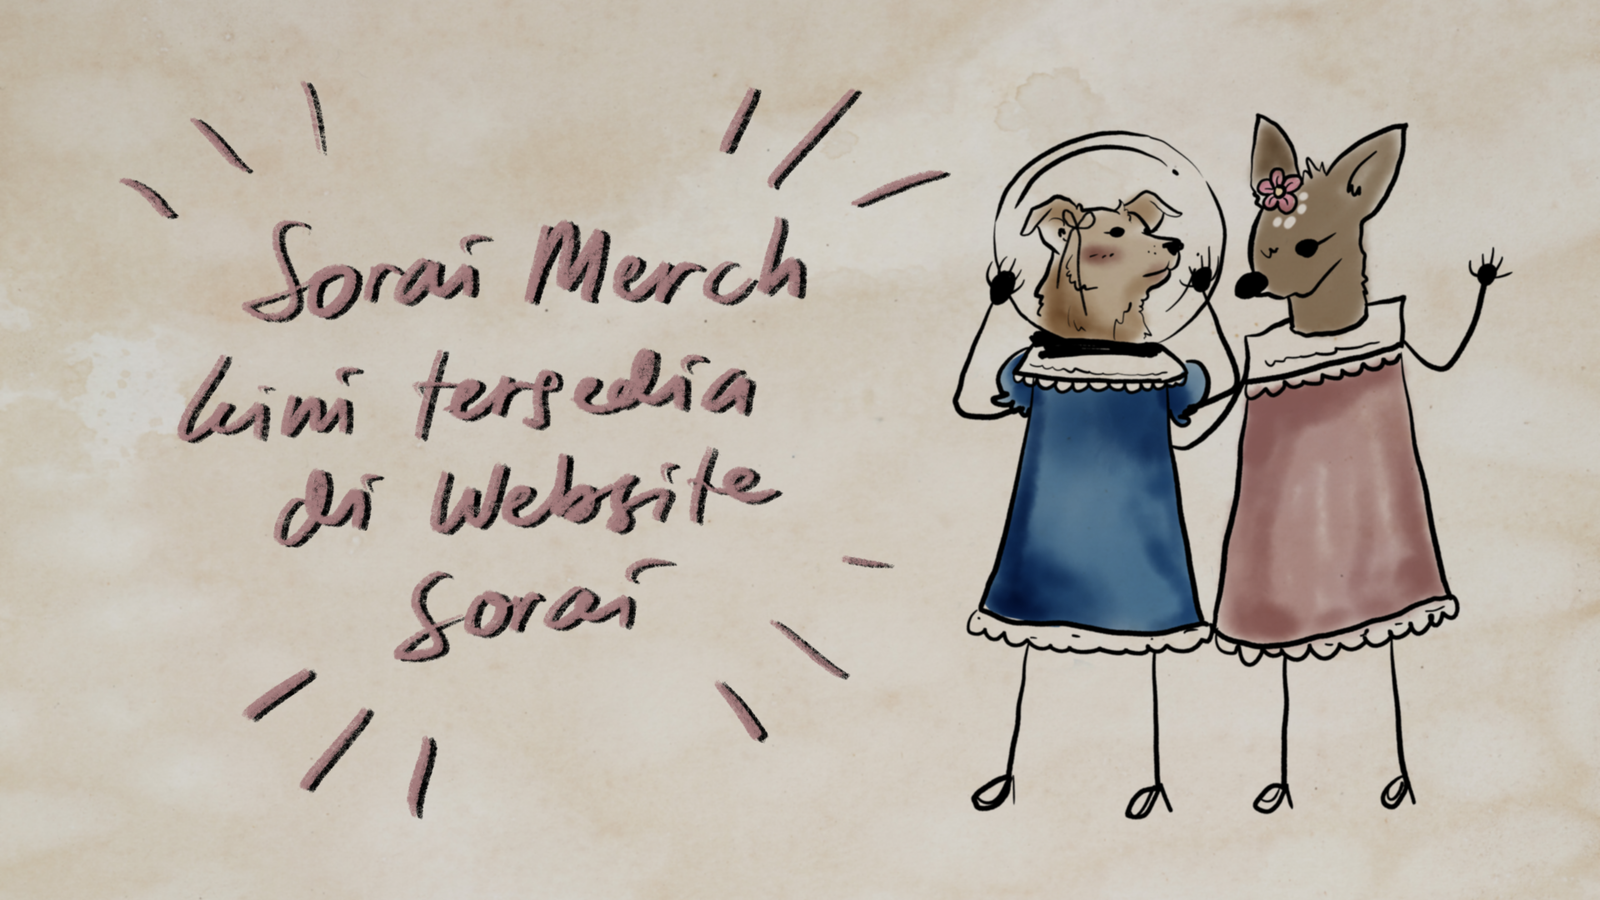 Sorai Merch
kini tersedia
di Website
Sorai